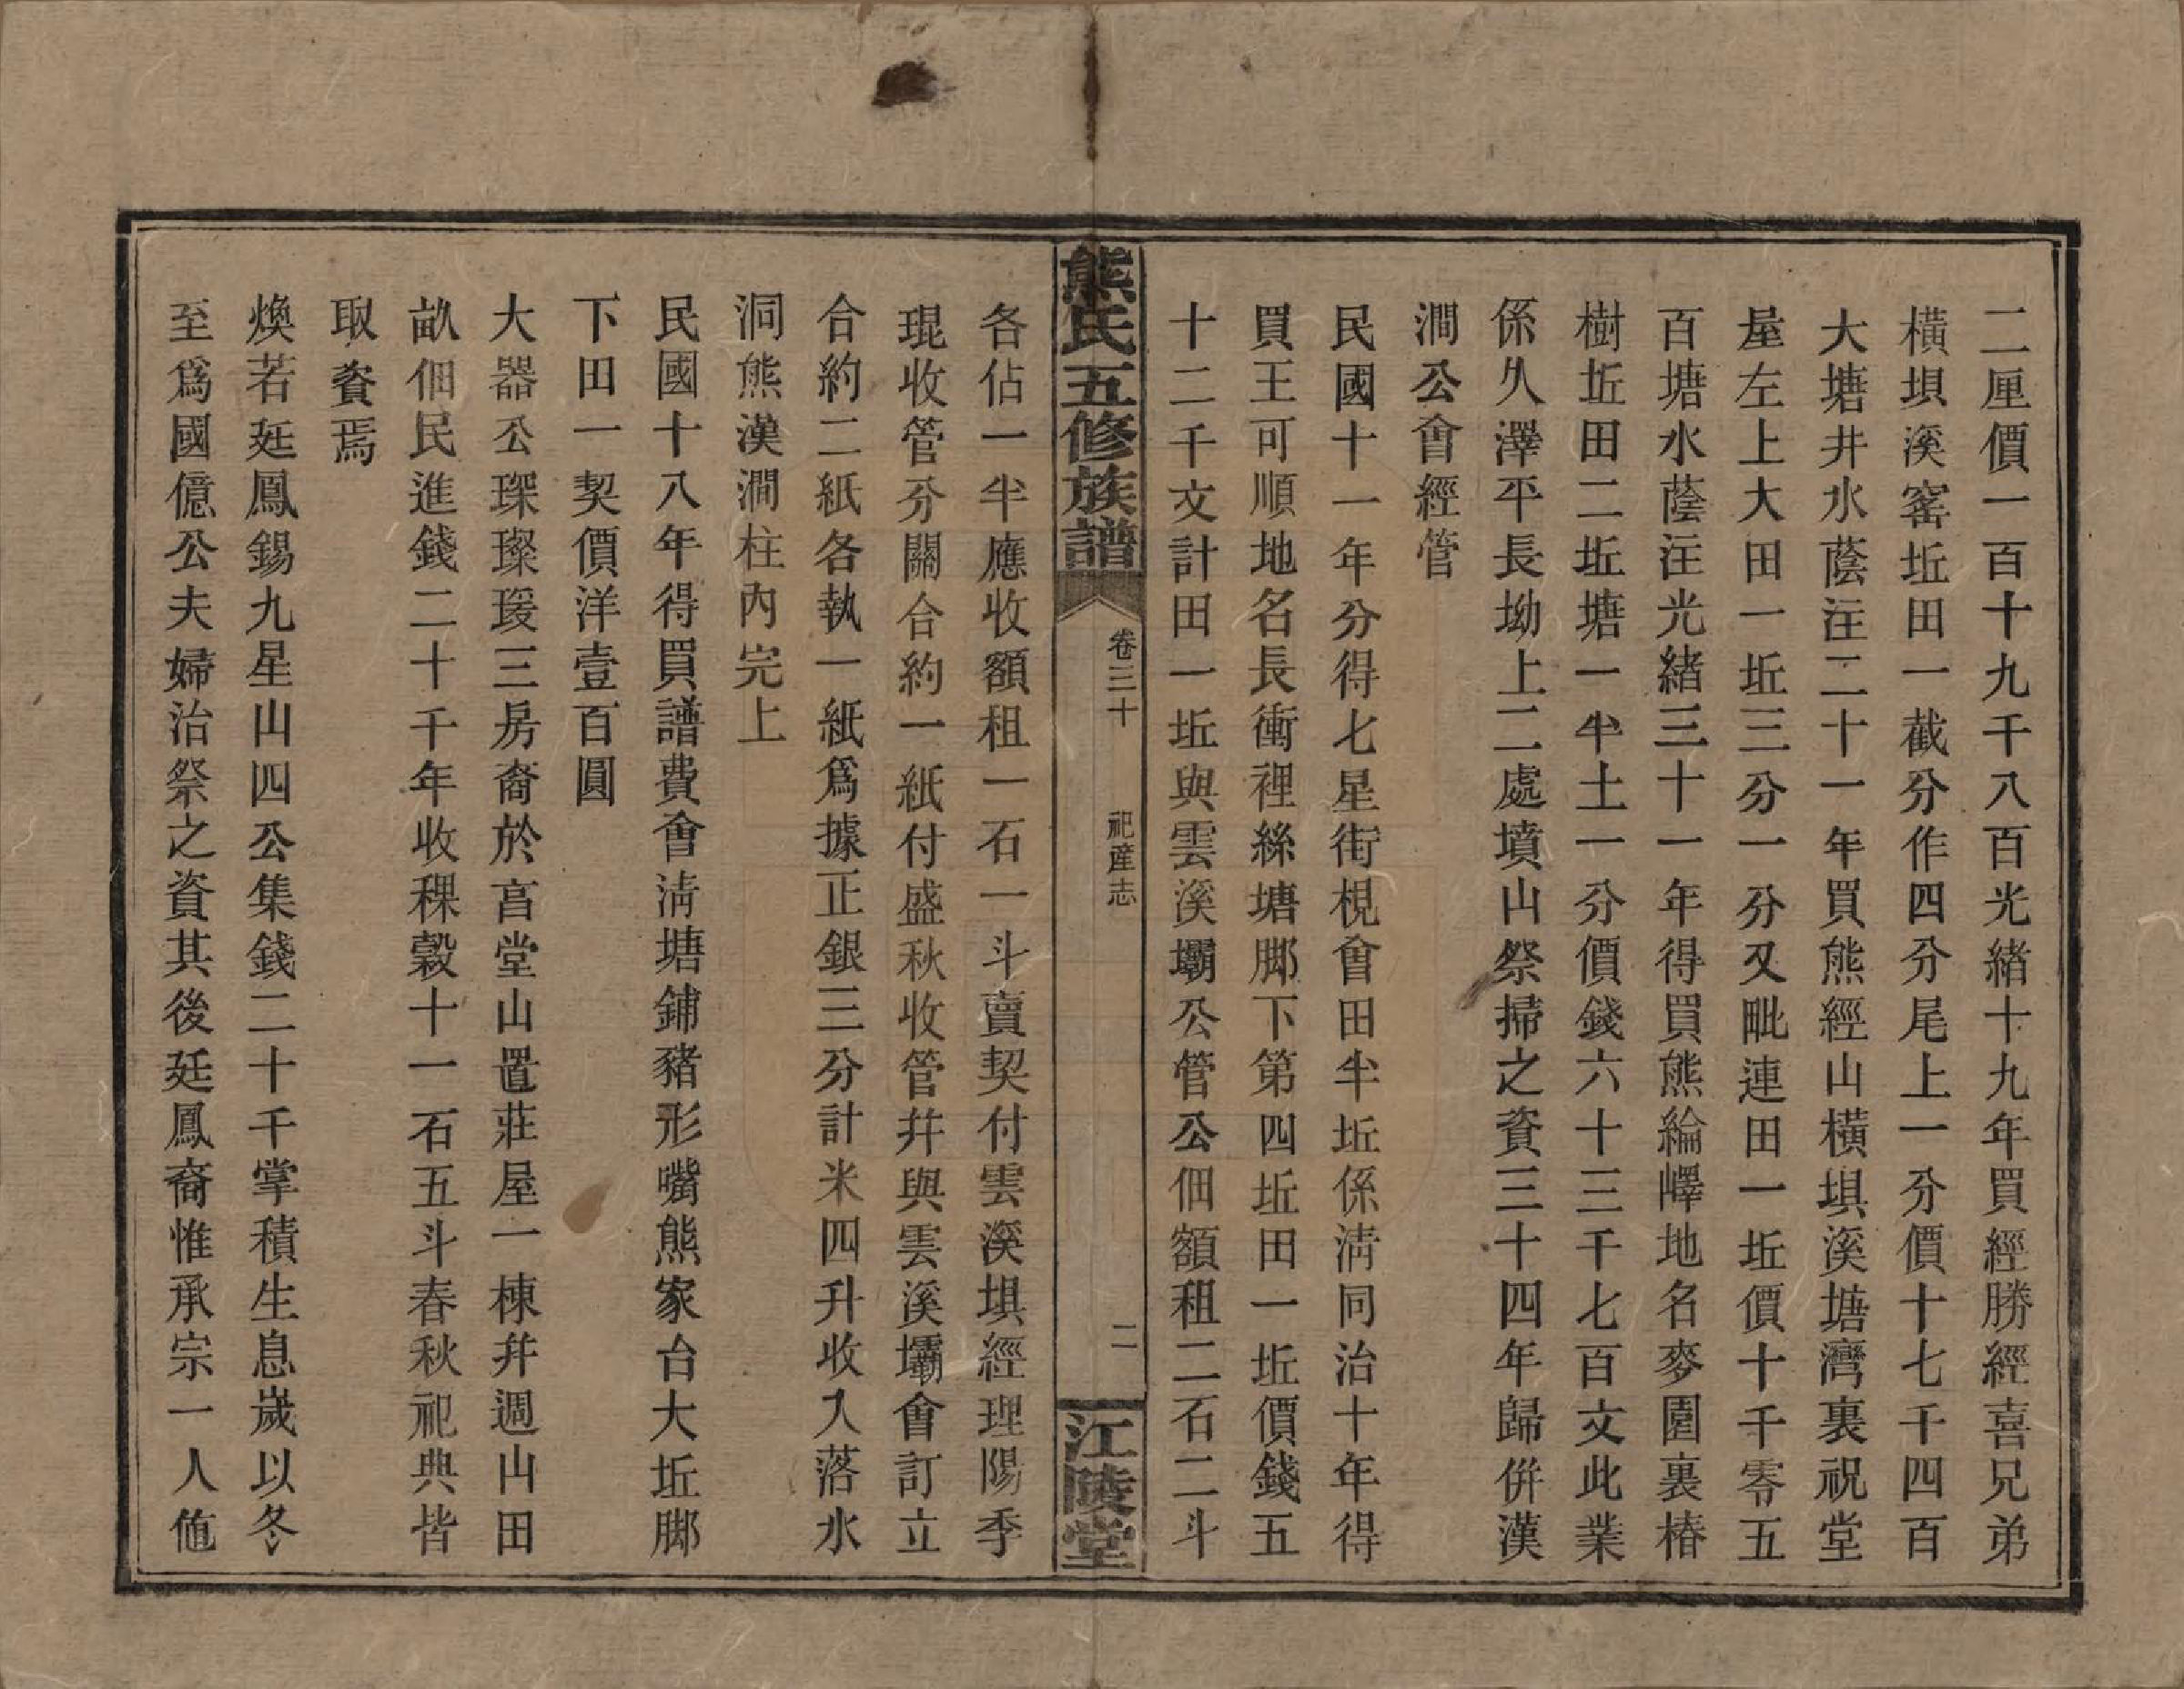 二厘價一百十九千八百光緒十九年買經勝經喜兄弟
橫垻溪窰坵田一截分作四分尾上一分價十七千四百
大塘井水蔭注二十一年買熊經山橫垻溪塘灣裏祝堂
屋左上大田一坵三分一分又毗連田一坵價十千零五
百塘水蔭注光緒三十一年得買熊綸嶧地名麥園裏椿
樹坵田二坵塘一半土一分價錢六十三千七百文此業
係久澤平長坳上二處墳山祭掃之資三十四年歸併漢
澗公會經管
民國十一年分得七星街梘會田半坵係淸同治十年得
買王可順地名長衝裡絲塘脚下第四坵田一坵價錢五
十二千文計田一坵與雲溪壩公管公佃額租二石二斗
熊氏五修族譜
卷三十
祀産志
二
江陵堂
各佔一半應收額租一石一斗賣契付雲溪垻經理陽季
琨收管分關合約一紙付盛秋收管幷與雲溪壩會訂立
合約二紙各執一紙爲據正銀三分計米四升收入落水
洞熊漢澗柱內完上
民國十八年得買譜費會淸塘鋪豬形嘴熊家台大坵脚
下田一契價洋壹百圓
大器公琛璨瑗三房裔於宮堂山置莊屋一棟幷週山田
畝佃民進錢二十千年收稞穀十一石五斗春秋祀典皆
取資焉
煥若廷鳳錫九星山四公集錢二十千掌積生息歲以冬
至爲國億公夫婦治祭之資其後廷鳳裔惟承宗一人他